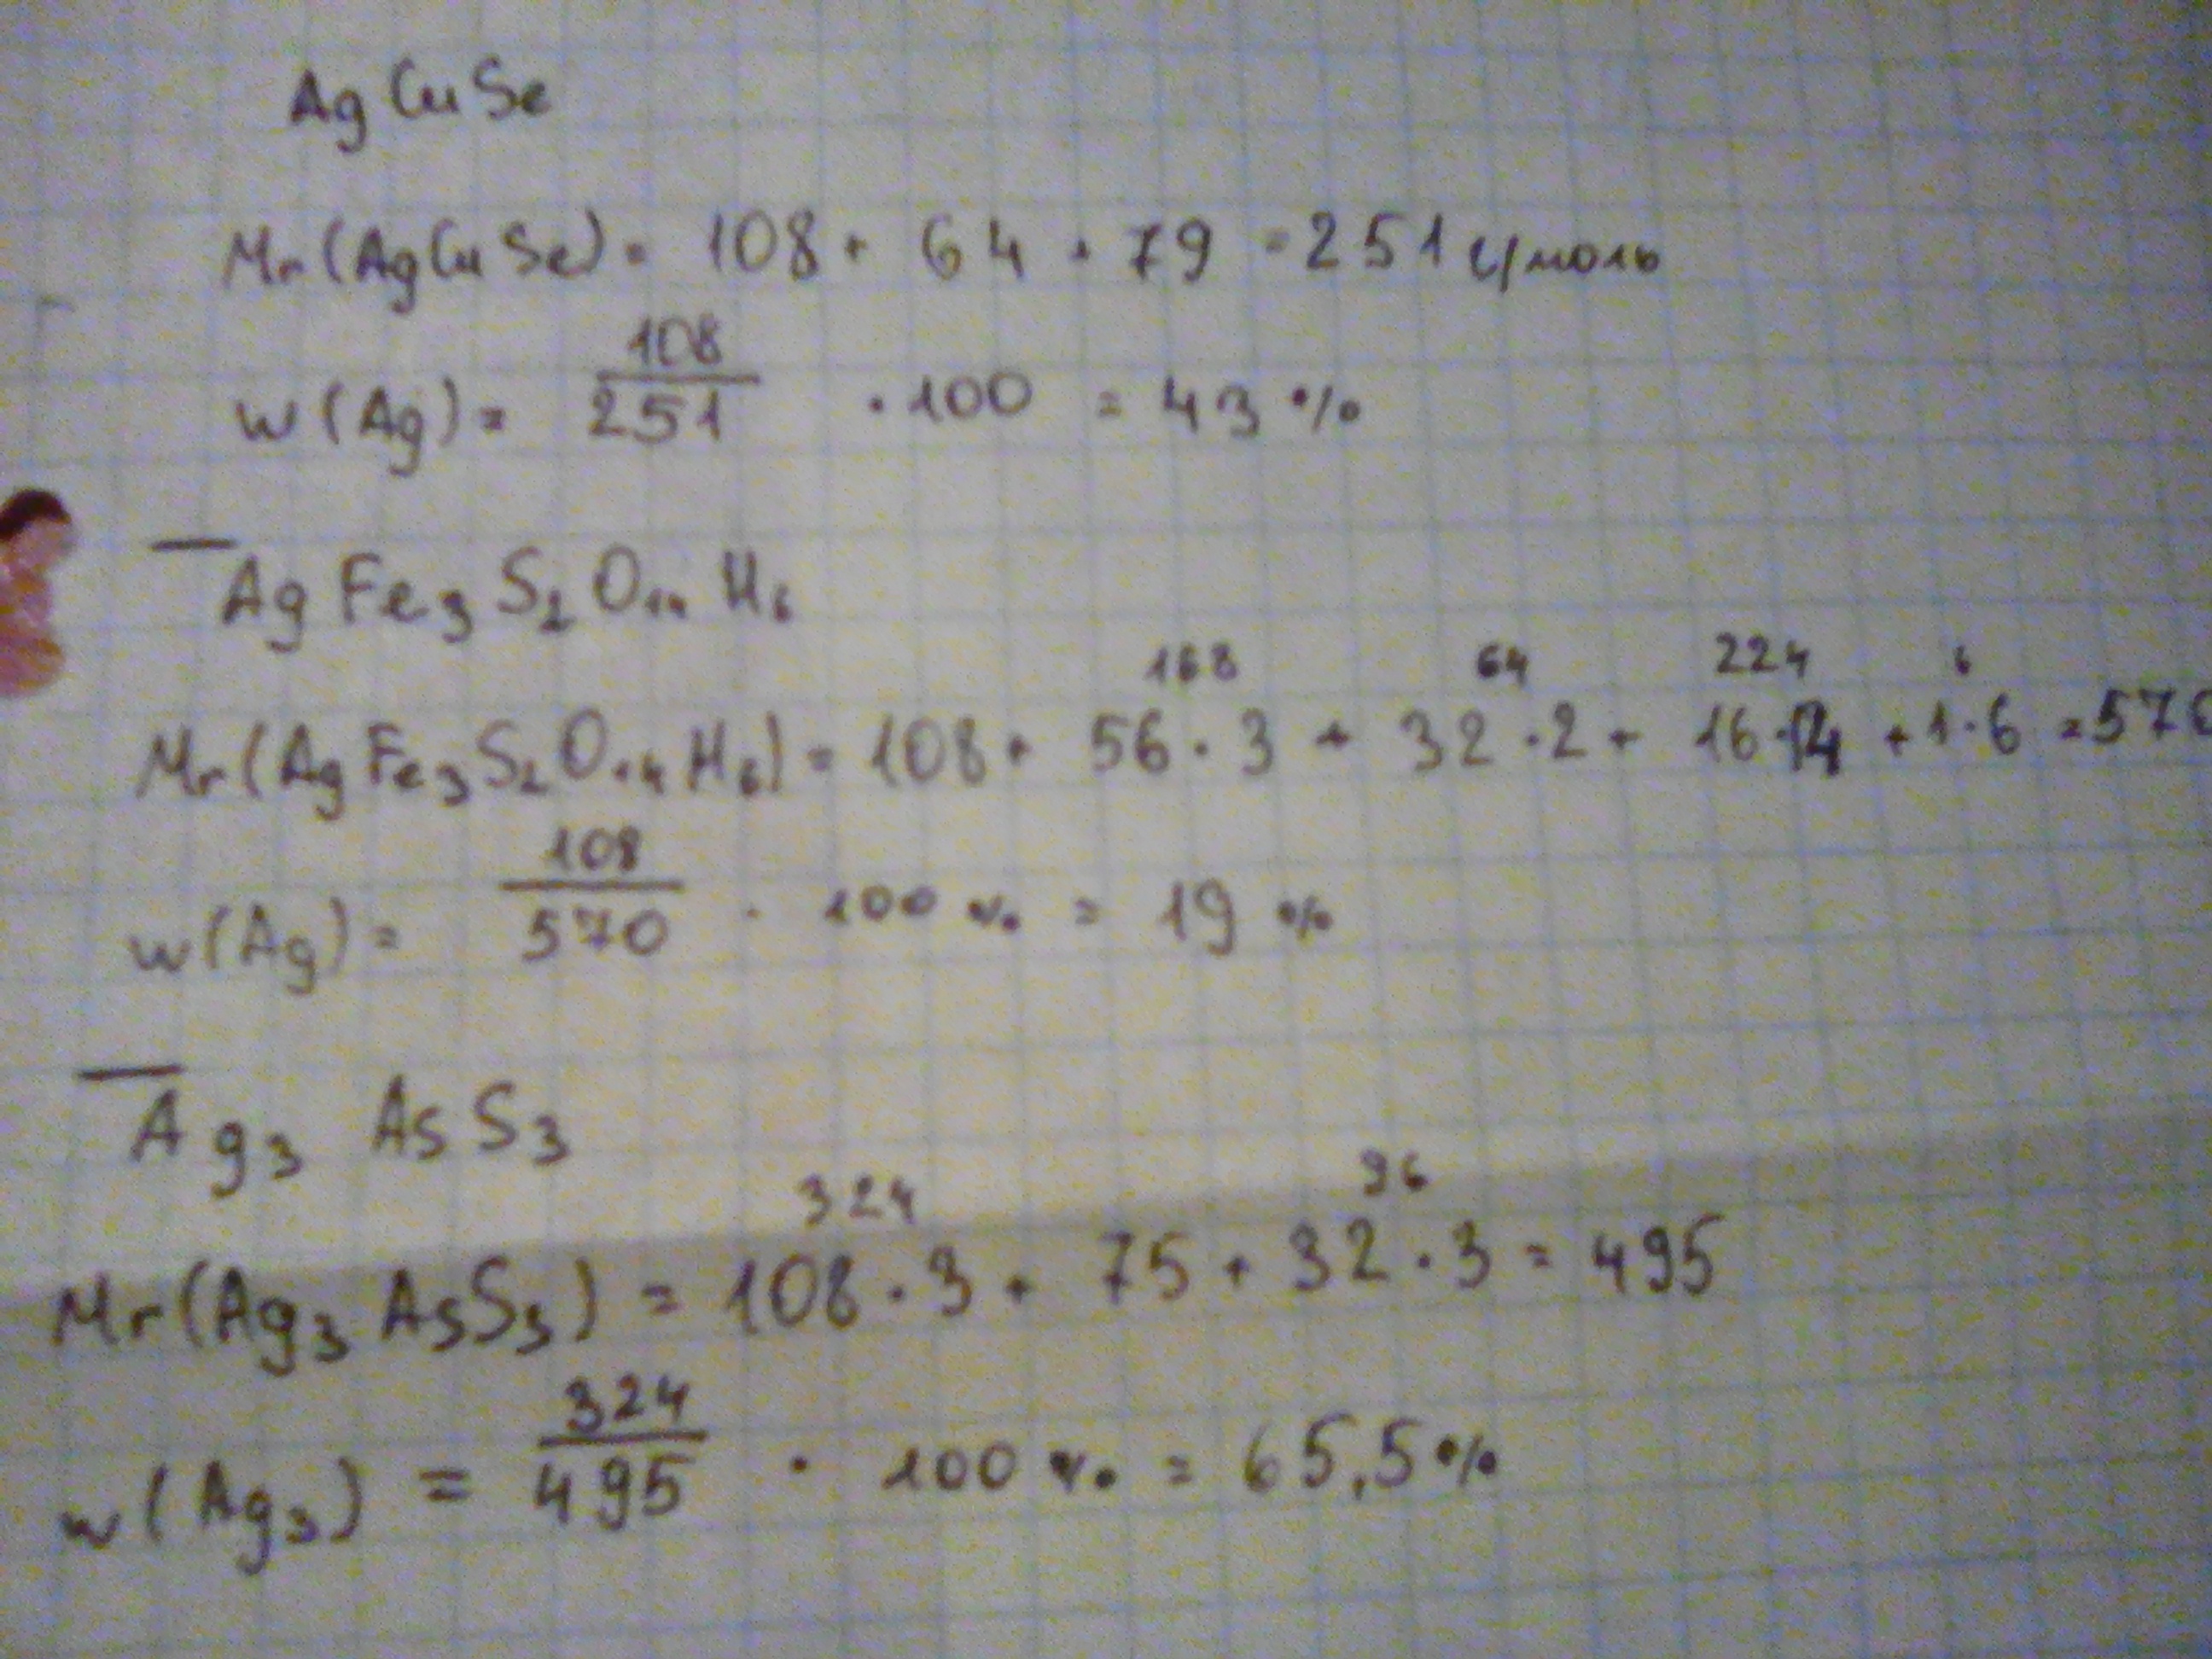 AgCuSe
Mr(AgCuSe) = 108 + 64 + 79 = 251 г/моль
w(Ag) = 108/251 · 100 = 43 %
AgFe₃S₂O₁₄H₆
168 64 224 6
Mr(AgFe₃S₂O₁₄H₆) = 108 + 56·3 + 32·2 + 16·14 + 1·6 = 570
w(Ag) = 108/570 · 100 % = 19 %
Ag₃AsS₃
324 96
Mr(Ag₃AsS₃) = 108·3 + 75 + 32·3 = 495
w(Ag₃) = 324/495 · 100 % = 65,5 %